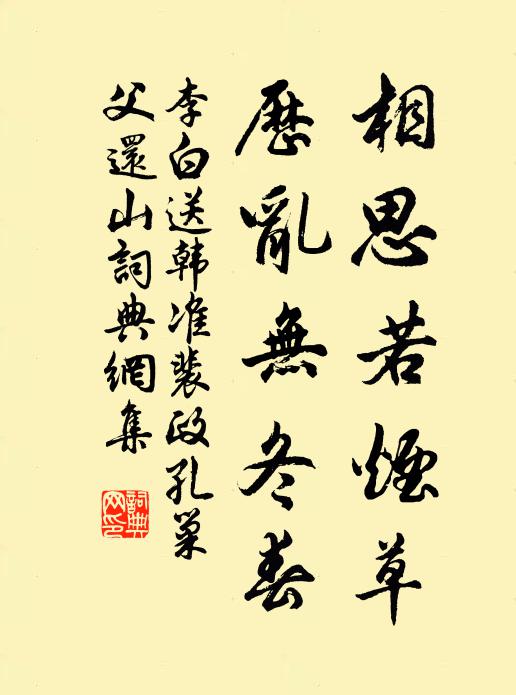 相思若煙草
歷亂無冬春
李白送韩准裴政孔巢
父還山詞典網集
詞典网印